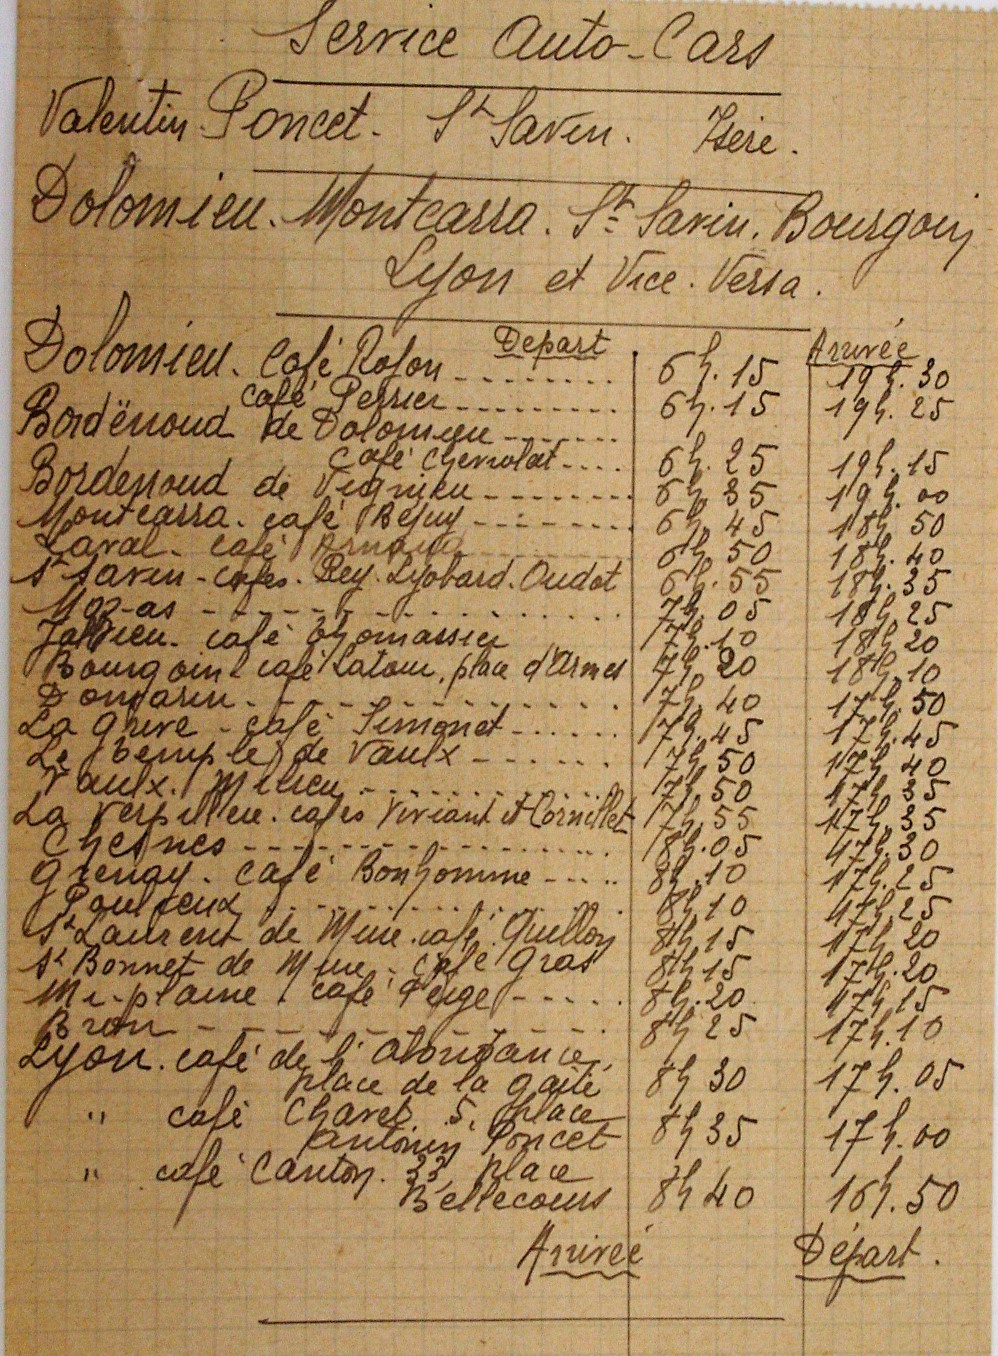 Service Auto-Cars
Valentin Poncet. St Savin. Isère.
Dolomieu. Montcarra. St Savin. Bourgoin
Lyon et Vice. Versa.
Départ Arrivée
Dolomieu. Café 6h.15 19h.30
Café Perrier 6h.15 19h.25
Bordënoud de Dolomieu
Café Chevrolat 6h.25 19h.15
Bordenoud de Vignieu 6h.35 19h.00
Montcarra. café 6h.45 18h.50
Laval. café Arnaud 6h.50 18h.40
St Savin - cafés. Rey. Lyobard. Oudot 6h.55 18h.35
Mozas 7h.05 18h.25
Jallieu. café Thomassier 7h.10 18h.20
Bourgoin. café Latour, place d'Armes 7h.20 18h.10
Domarin 7h.40 17h.50
La Grive - café Simonet 7h.45 17h.45
Le Temple de Vaulx 7h.50 17h.40
Vaulx. Milieu 7h.50 17h.35
La Verpilleu. cafés Viviant et Cornillet 7h.55 17h.35
Chesnes 8h.05 17h.30
Grenay. café Bonhomme 8h.10 17h.25
8h.10 17h.25
St Laurent de Mure. café Guillon 8h.15 17h.20
St Bonnet de Mure - café Gras 8h.15 17h.20
Mi-plaine. café 8h.20 17h.15
Bron 8h.25 17h.10
Lyon. café de l'abondance,
place de la gaité 8h 30 17h.05
" café Charvet. 5, place
antonin Poncet 8h 35 17h.00
" café Canton. 33, place
Bellecours 8h 40 16h.50
Arrivée Départ.